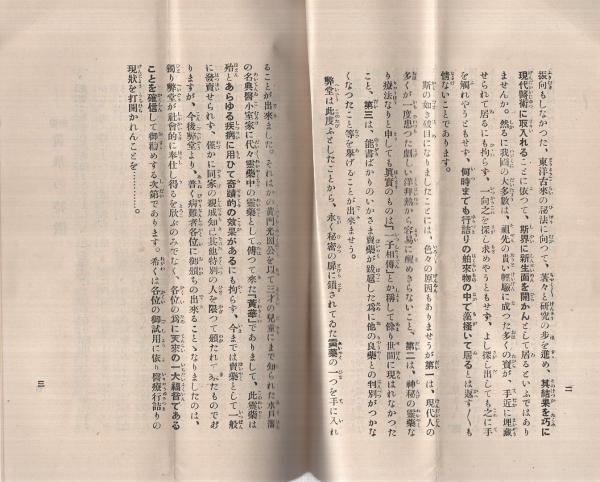 振向もしなかつた、東洋古來の祕法に向つて、着々と研究の歩を進め、其結果を巧に
現代醫術に取入れることに依つて、斯界に新生面を開かんとして居るといふではあり
ませんか。然るに我國の大多數は、祖先の貴い經驗に成つた多くの寶が、手近に埋藏
せられて居るにも拘らず、一向之を探し求めやうともせず、よし探し出しても之に手
を觸れやうともせず、何時までも行詰りの舶來物の中で藻掻いて居るとは返す〳〵も
慨ないことであります。
斯の如き破目になりましたことには、色々の原因もありませうが第一は、現代人の
多くが一度患つた劇しい洋科熱から容易に醒めきらないこと、第二は、神秘の靈藥な
り療法なりと申しても眞實のものは「一子相傳」とか稱して餘り世間に現はれなかつた
こと、第三は、能書ばかりのいかさま賣藥が跋扈した爲に他の良藥との判別がつかな
くなつたこと等を擧げることが出來ませう。
弊堂は此度ふとしたことから、永く秘密の扉に鎖されてゐた靈藥の一つを手に入れ
II
ることが出來ました。それはかの黄門光圀公を以て三才の兒童にまで知られた水戸藩
の名典醫小室家に代々靈藥中の靈藥として傳つて來た「黄華」でありまして、此靈藥は
殆とあらゆる疾病に用ひて奇蹟的の效果があるにも拘らず、今までは賣藥として一般
に發賣せられず、僅かに同家の親戚知己其他特別の人を限つて頒たれてゐたものであ
りますが、今後弊堂より、普く病難者各位に御頒ちの出來ることゝなりましたのは、
獨り弊堂が社會的に奉仕し得るを欣ぶのみでなく、各位の爲に天來の一大福音である
ことを確信して御勸めする次第であります。希くは各位の御試用に依り醫療行詰りの
現狀を打開かれんことを………。
III